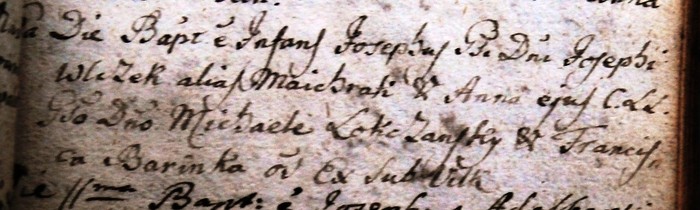 Die Bapt ẽ Infans Josephus Pi Dni Josephi
Wlczek alias Maichrati & Anna ejus C.LL.
Dno Michaele Lokczansky & Francis,
ca Barinka oẽs Ex Sub Vitk
Bapt: ẽ Josephus